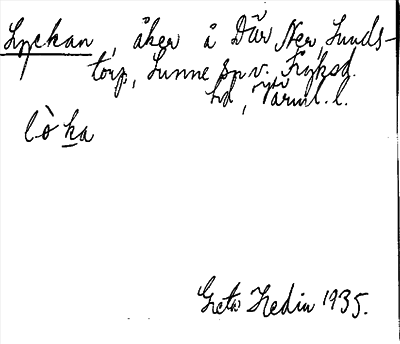 Lyckan, åker å Där Ner, Lunds-
torp, Sunne sn v. Fryksd.
hd, Värml. l.
lò ka
Greta Hedin 1935.